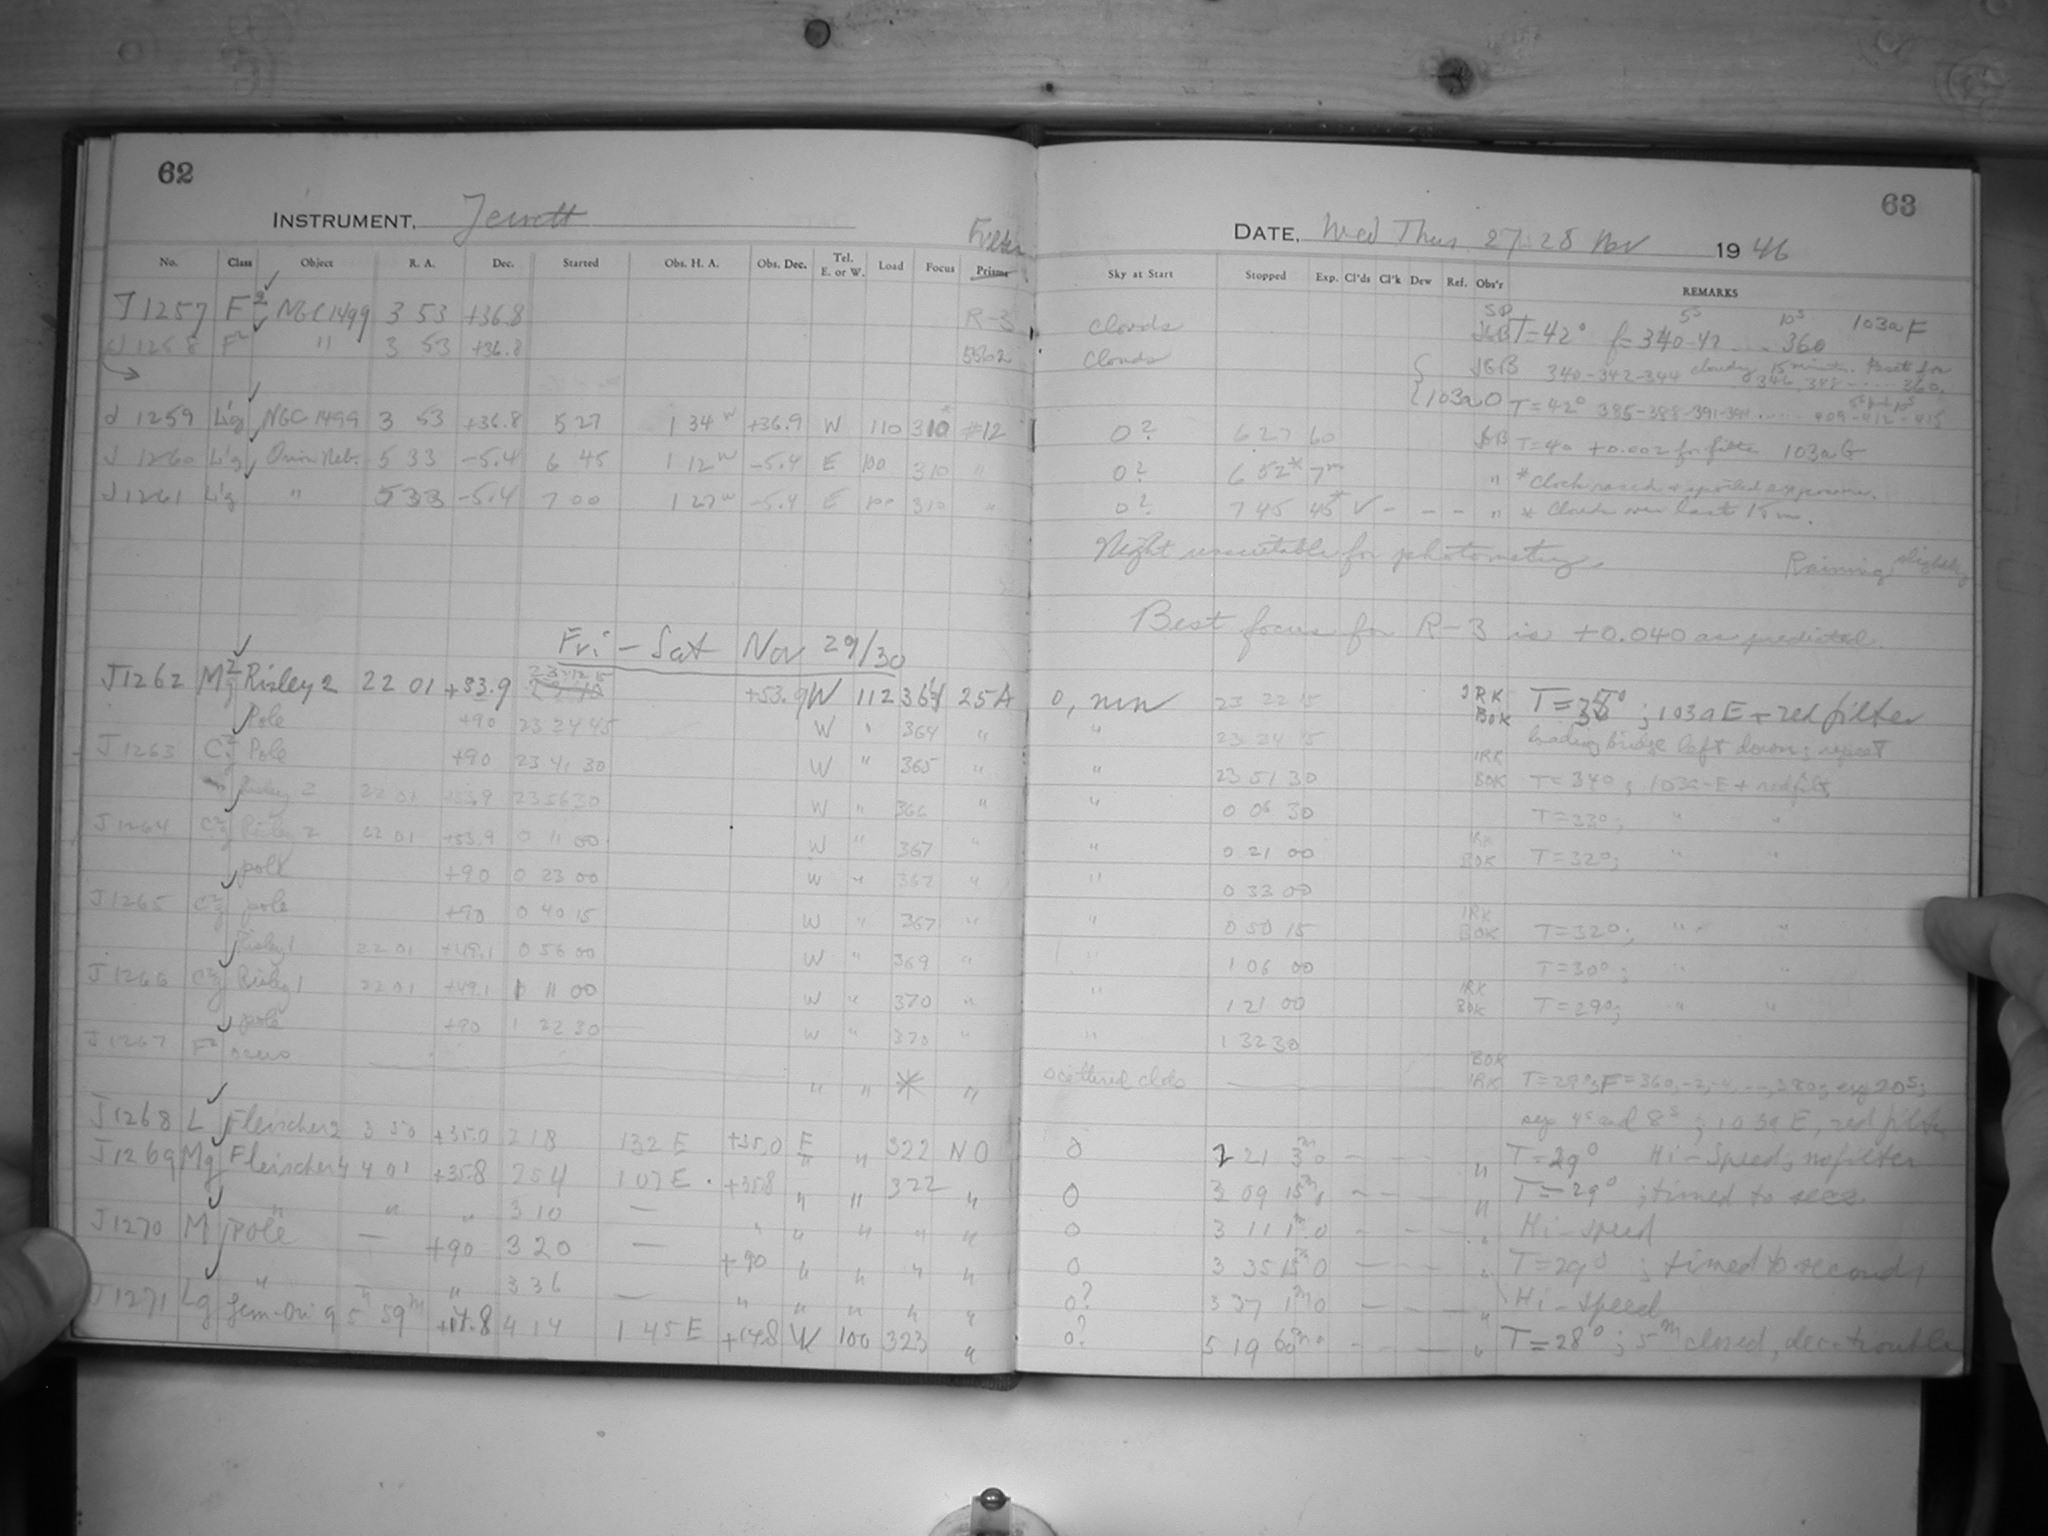 62
INSTRUMENT, Jewett
Filter
No. Class Object R. A. Dec. Started Obs. H. A. Obs. Dec. Tel. E. or W. Load Focus Prisms
J 1257 F² NGC 1499 3 53 +36.8 R-3
J 1258 F² " 3 53 +36.8 5562
J 1259 L'g NGC 1499 3 53 +36.8 5 27 1 34 W +36.9 W 110 310 #12
J 1260 L'g Orion Neb. 5 33 -5.4 6 45 1 12 W -5.4 E 100 310 "
J 1261 L'g " 5 33 -5.4 7 00 1 27 W -5.4 E 100 310 "
Fri - Sat Nov 29/30
J1262 M²g Risley 2 22 01 +53.9 23 12 15 +53.9 W 112 364 25A
Pole +90 23 24 45 W " 364 "
J1263 C²g Pole +90 23 41 30 W " 365 "
Risley 2 22 01 +53.9 23 56 30 W " 366 "
J1264 C²g Risley 2 22 01 +53.9 0 11 00 W " 367 "
pole +90 0 23 00 W " 367 "
J1265 C²g pole +90 0 40 15 W " 367 "
Risley 1 22 01 +49.1 0 56 00 W " 369 "
J1266 C²g Risley 1 22 01 +49.1 1 11 00 W " 370 "
pole +90 1 22 30 W " 370 "
J1267 F² " " * "
J1268 L Fleischer 2 3 50 +35.0 2 18 1 32 E +35.0 E " 322 NO
J1269 Mg Fleischer 4 4 01 +35.8 2 54 1 07 E +35.8 " " 322 "
" " " 3 10 — " " " " "
J1270 M pole — +90 3 20 — +90 " " " "
" " 3 36 — " " " " "
J1271 Lg Gem-Ori 9 5ʰ 59ᵐ +17.8 4 14 1 45 E W 100 323 "
63
DATE, Wed Thurs 27-28 Nov 1946
Sky at Start Stopped Exp. Cl'ds Cl'k Dew Ref. Obs'r REMARKS
Clouds JGB T=42° f=340-42 .... 360 5ˢ 10ˢ 103aF
Clouds JGB 340-342-344 cloudy 15 minutes.
103aO T=42° 385-388-391-394 ...... 409-412-415
0? 6 27 60 JGB T=40 +0.002 for filter 103aG
0? 6 52* 7ᵐ " * Clock raced & spoiled exposure.
0? 7 45 45* V - - - " * Clouds over last 15 m.
Night unsuitable for photometry. Raining slightly
Best focus for R-3 is +0.040 as predicted.
0, 23 22 15 IRK BOK ; 103aE + red filter
" loading bridge left down; repeat
" 23 51 30 IRK BOK T=34°; 103a-E + red filt.
" 0 06 30 T=33°; " "
" 0 21 00 IRK BOK T=32°; " "
" 0 33 00
" 0 50 15 IRK BOK T=32°; " "
" 1 06 00 T=30°; " "
" 1 21 00 IRK BOK T=29°; " "
" 1 32 30
scattered clds — BOK IRK T=29°; F=360, -2, -4, --, 380; exp 20ˢ;
sep 4ˢ and 8ˢ; 103aE, red filter
0 2 21 3ᵐ0 — - - - " T=29° Hi-Speed; no filter
0 3 09 15ᵐ0 - - - " T=29°; timed to secs
0 3 11 1ᵐ0 - - - " Hi-speed
0 3 35 15ᵐ0 — - - - " T=29°; timed to seconds
0? 3 37 1ᵐ0 - - - " Hi-speed
0? 5 19 60ᵐ0 - - - " T=28°; 5ᵐ closed, dec-trouble